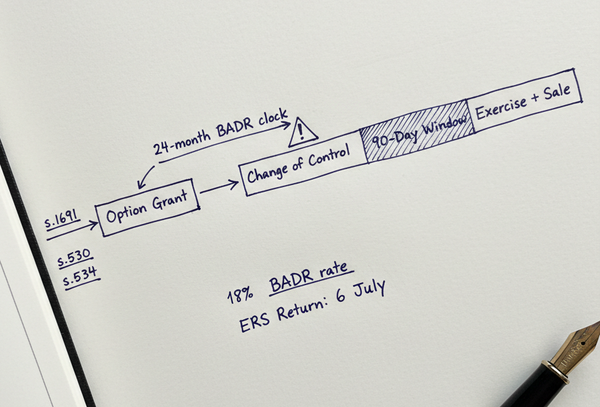 24-month BADR clock
!
Option Grant
Change of Control
90-Day Window
Exercise + Sale
s.1691
s.530
s.534
18% BADR rate
ERS Return: 6 July